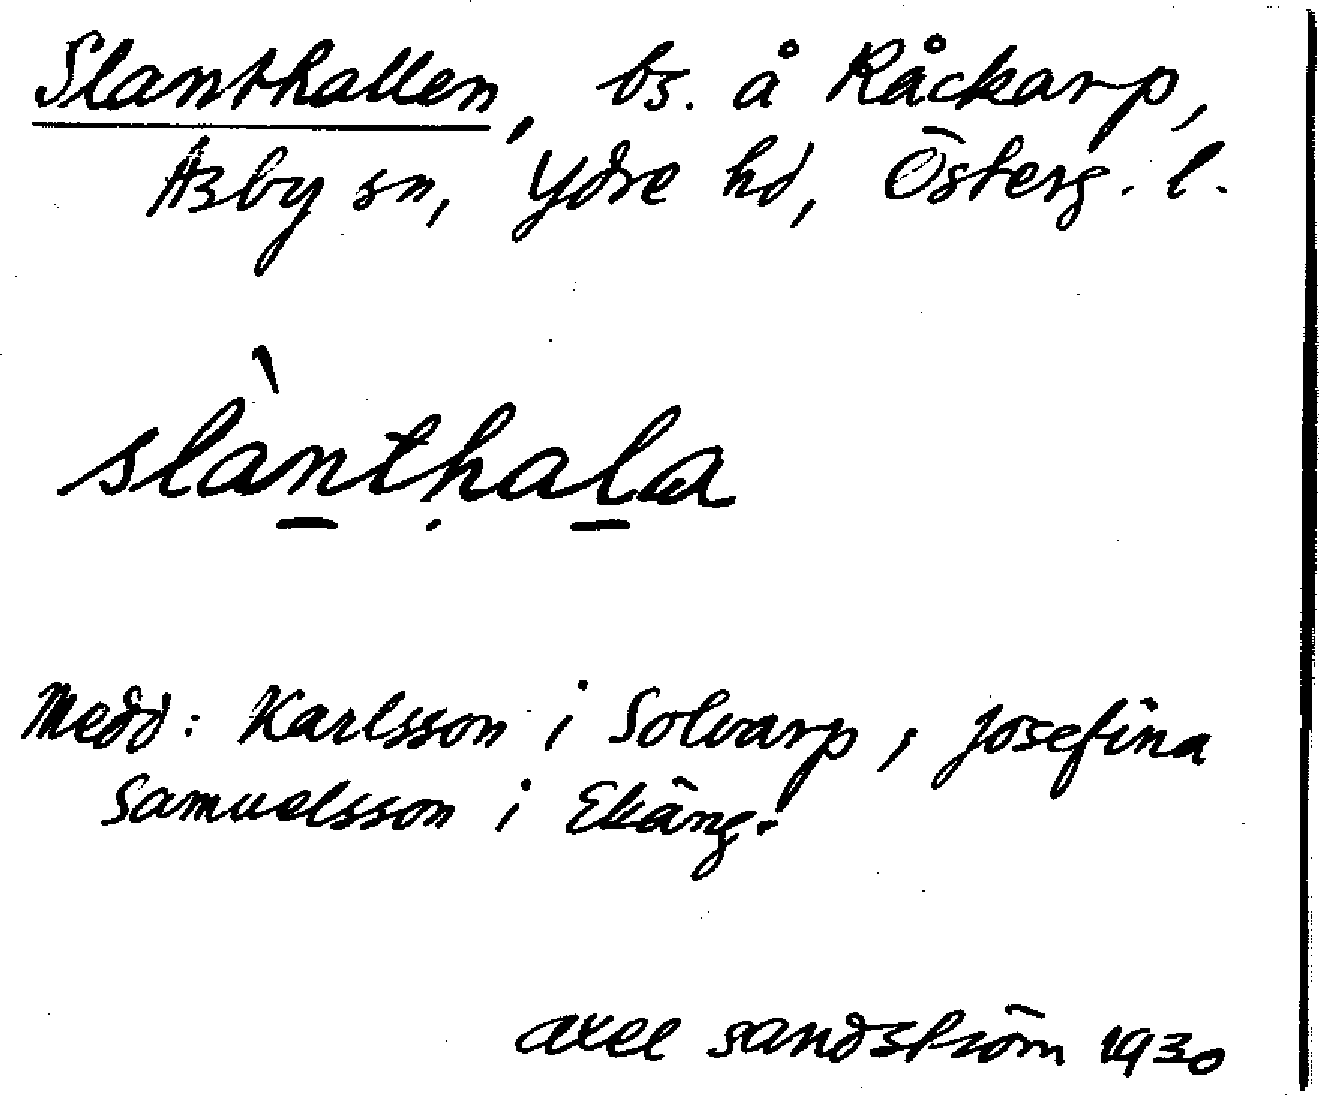 Slanthallen, bs. å Råckarp,
Asby sn, Ydre hd, Österg. l.
slànthala
Medd: Karlsson i Solvarp, Josefina
Samuelsson i Ekäng.
Axel Sandström 1930